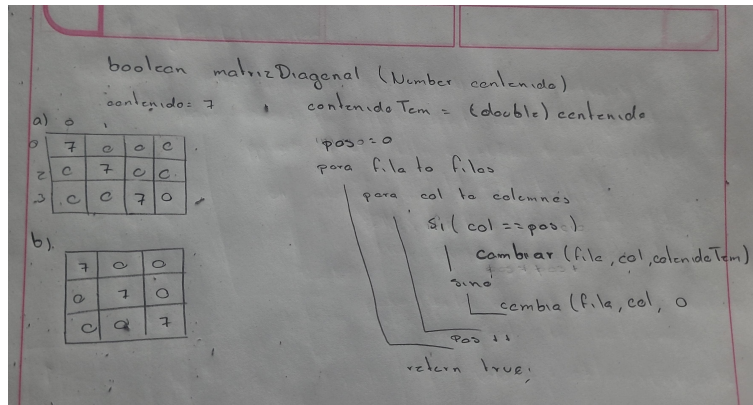 boolean matrizDiagonal (Number contenido)
contenido: 7 contenidoTem = (double) contenido
a) 0
0 7 0 0 0
2 0 7 0 0
3 0 0 7 0
b)
7 0 0
0 7 0
0 0 7
pos = 0
para fila to filas
para col to columnas
si (col == pos)
cambiar (fila, col, contenidoTem)
sino
cambia (fila, col, 0
pos ++
return true;